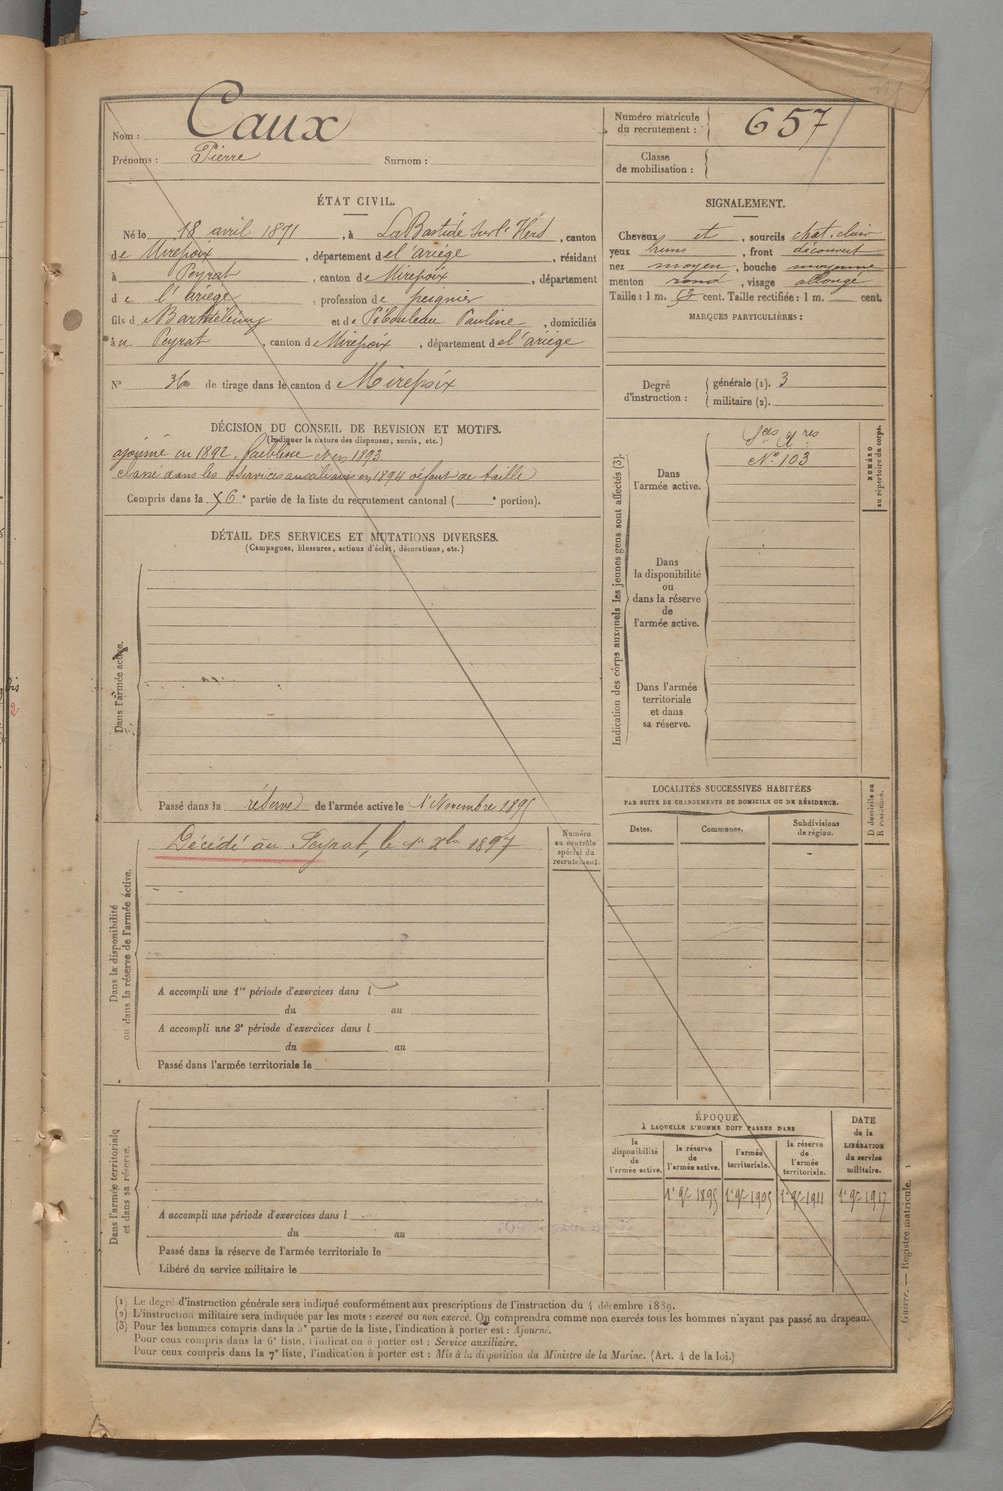 Nom : Caux
Prénoms : Pierre Surnom :
Numéro matricule du recrutement : 657
Classe de mobilisation :
ÉTAT CIVIL.
Né le 18 avril 1871, à LaBastide sur l'Hers, canton
de Mirepoix, département de l'ariège, résidant
à Peyrat, canton de Mirepoix, département
de l'ariège, profession de peignier
fils de Barthélémy et de Pauline, domiciliés
au Peyrat, canton de Mirepoix, département de l'ariège
N° 36 de tirage dans le canton de Mirepoix
SIGNALEMENT.
Cheveux et, sourcils chat. clair
yeux bruns, front découvert
nez moyen, bouche moyenne
menton rond, visage allongé
Taille : 1 m. cent. Taille rectifiée : 1 m. cent.
MARQUES PARTICULIÈRES :
Degré d'instruction : générale (1). 3
militaire (2).
DÉCISION DU CONSEIL DE REVISION ET MOTIFS.
(Indiquer la nature des dispenses, sursis, etc.)
ajourné en 1892. faiblesse et en 1893.
classé dans les services auxiliaires en 1894 défaut de taille
Compris dans la 6e partie de la liste du recrutement cantonal ( e portion).
DÉTAIL DES SERVICES ET MUTATIONS DIVERSES.
(Campagnes, blessures, actions d'éclat, décorations, etc.)
Dans l'armée active.
Passé dans la réserve de l'armée active le 1er Novembre 1895
Dans la disponibilité
ou dans la réserve de l'armée active.
Numéro
au contrôle
spécial du
recrutement.
Décédé au Peyrat, le 1er Xbre 1897
A accompli une 1re période d'exercices dans l
du au
A accompli une 2e période d'exercices dans l
du au
Passé dans l'armée territoriale le
Dans l'armée territoriale
et dans sa réserve.
A accompli une période d'exercices dans l
du au
Passé dans la réserve de l'armée territoriale le
Libéré du service militaire le
Indication des corps auxquels les jeunes gens sont affectés (3).
NUMÉRO
au répertoire du corps.
Dans
l'armée active.
Sces Aires
N° 103
Dans
la disponibilité
ou
dans la réserve
de
l'armée active.
Dans l'armée
territoriale
et dans
sa réserve.
LOCALITÉS SUCCESSIVES HABITÉES
PAR SUITE DE CHANGEMENTS DE DOMICILE OU DE RÉSIDENCE.
Dates. Communes. Subdivisions de région.
D domicile ou
R résidence.
ÉPOQUE
À LAQUELLE L'HOMME DOIT PASSER DANS
DATE
de la
LIBÉRATION
du service
militaire.
la disponibilité de l'armée active.
la réserve de l'armée active.
l'armée territoriale.
la réserve de l'armée territoriale.
1er 9bre 1895 1er 9bre 1905 1er 9bre 1911 1er 9bre 1917
(1) Le degré d'instruction générale sera indiqué conformément aux prescriptions de l'instruction du 4 décembre 1889.
(2) L'instruction militaire sera indiquée par les mots : exercé ou non exercé. On comprendra comme non exercés tous les hommes n'ayant pas passé au drapeau.
(3) Pour les hommes compris dans la 5e partie de la liste, l'indication à porter est : Ajourné.
Pour ceux compris dans la 6e liste, l'indication à porter est : Service auxiliaire.
Pour ceux compris dans la 7e liste, l'indication à porter est : Mis à la disposition du Ministre de la Marine. (Art. 4 de la loi.)
Guerre. — Registre matricule. 1